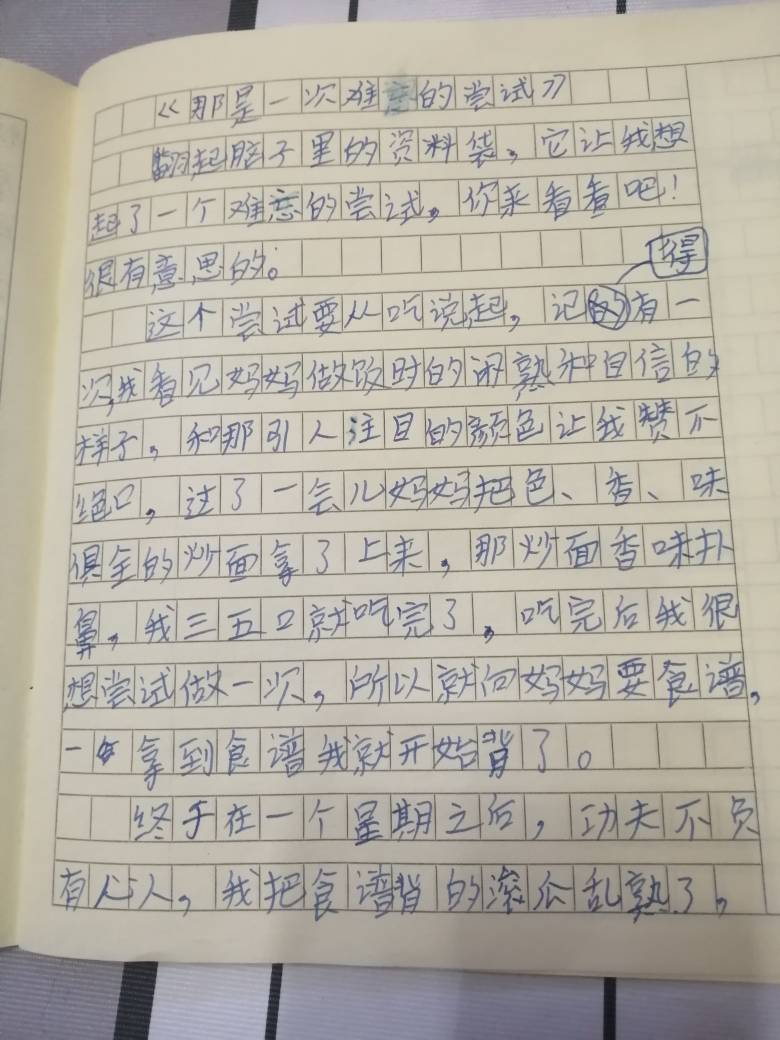 《那是一次难忘的尝试》
翻起脑子里的资料袋，它让我想
起了一个难忘的尝试，你来看看吧！
很有意思的。
得
这个尝试要从吃说起，记的有一
次，我看见妈妈做饭时的闲熟和自信的
样子，和那引人注目的颜色让我赞不
绝口，过了一会儿妈妈把色、香、味
俱全的炒面拿了上来，那炒面香味扑
鼻，我三五口就吃完了，吃完后我很
想尝试做一次，所以就向妈妈要食谱，
一拿到食谱我就开始背了。
终于在一个星期之后，功夫不负
有心人，我把食谱背的滚瓜乱熟了，